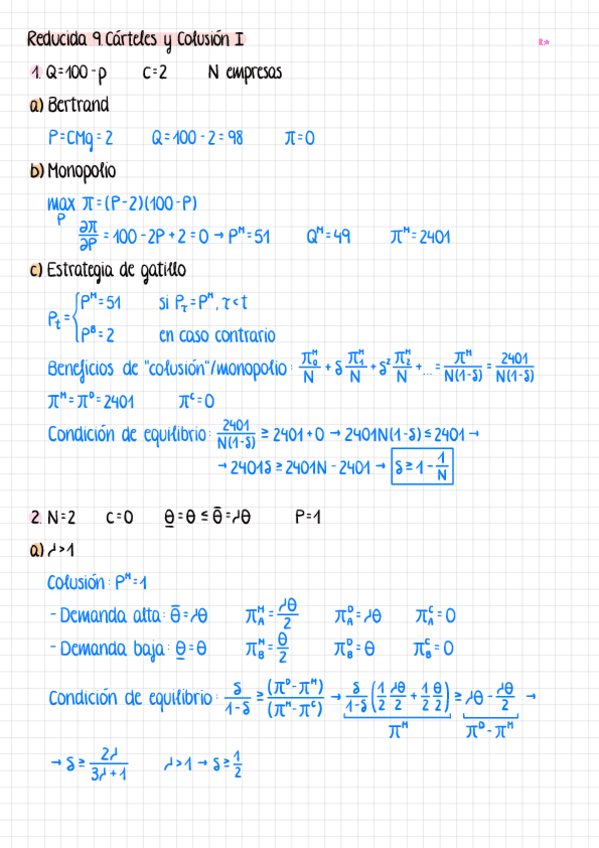 Reducida 9. Cárteles y Colusión I
1. Q=100-p C=2 N empresas
a) Bertrand
P=CMg=2 Q=100-2=98 π=0
b) Monopolio
max π=(P-2)(100-P)
P
∂π/∂P = 100-2P+2=0 → Pᴹ=51 Qᴹ=49 πᴹ=2401
c) Estrategia de gatillo
Pₜ = { Pᴹ=51 si Pτ=Pᴹ, τ<t
Pᴮ=2 en caso contrario
Beneficios de "colusión"/monopolio: π₀ᴹ/N + δ π₁ᴹ/N + δ² π₂ᴹ/N + ... = πᴹ/N(1-δ) = 2401/N(1-δ)
πᴹ=πᴰ=2401 πᶜ=0
Condición de equilibrio: 2401/N(1-δ) ≥ 2401+0 → 2401N(1-δ) ≤ 2401 →
→ 2401δ ≥ 2401N - 2401 → δ ≥ 1 - 1/N
2. N=2 C=0 θ̲=θ ≤ θ̄=λθ P=1
a) λ>1
Colusión: Pᴹ=1
- Demanda alta: θ̄=λθ π_Aᴹ = λθ/2 π_Aᴰ=λθ π_Aᶜ=0
- Demanda baja: θ̲=θ π_Bᴹ = θ/2 π_Bᴰ=θ π_Bᶜ=0
Condición de equilibrio: δ/1-δ ≥ (πᴰ-πᴹ)/(πᴹ-πᶜ) → δ/1-δ (1/2 λθ/2 + 1/2 θ/2) ≥ λθ - λθ/2 →
πᴹ πᴰ-πᴹ
→ δ ≥ 2λ/3λ+1 λ>1 → δ ≥ 1/2